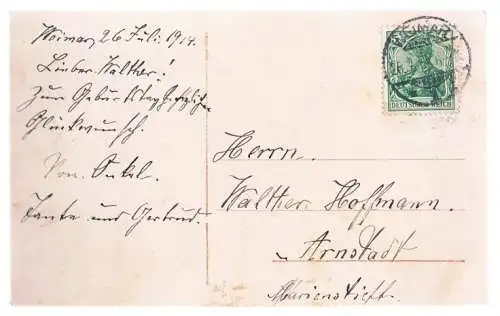 Weimar, 26 Juli. 1914.
Lieber Walther!
Zum Geburtstag herzlichen
Glückwunsch.
Von. Onkel.
Tante und Gertrud.
WEIMAR
DEUTSCHES REICH
Herrn
Walther Hoffmann.
Arnstadt
Marienstift.